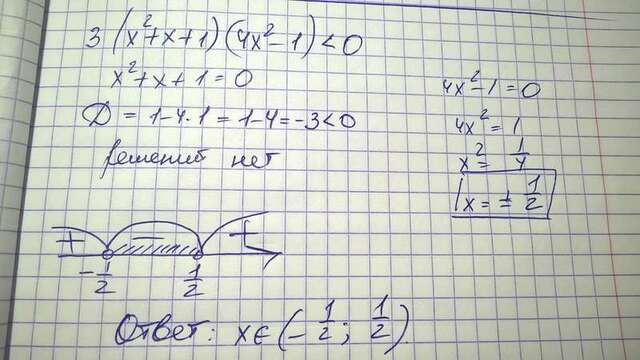 3 (x²+x+1)(4x²-1)<0
x²+x+1=0
D=1-4·1=1-4=-3<0
решений нет
4x²-1=0
4x²=1
x²=1/4
x=±1/2
+ - +
-1/2 1/2
Ответ: x∈(-1/2; 1/2).